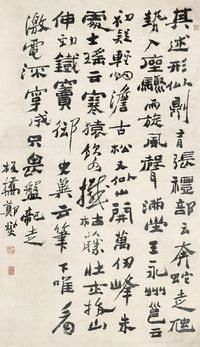 其述形似則有張禮部云奔蛇走虺
勢入座驟雨旋風聲滿堂王永州邕云
初疑輕煙澹古松又似山開萬仞峰朱
處士瑤云寒猿飲水撼枯藤壯士拔山
伸勁鐵竇御史冀云筆下唯看
激電流字成只畏盤龍走
板橋鄭燮